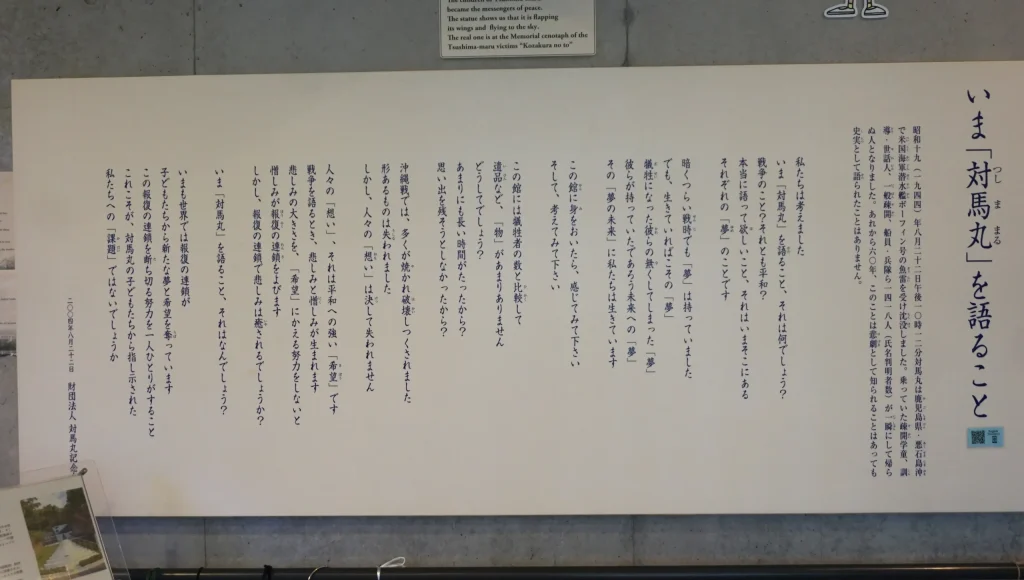 became the messengers of peace.
The statue shows us that it is flapping
its wings and flying to the sky.
The real one is at the Memorial cenotaph of the
Tsushima-maru victims "Kozakura no to"
いま「対馬丸」を語ること
昭和十九（一九四四）年八月二十二日午後一〇時一二分対馬丸は鹿児島県・悪石島沖
で米国海軍潜水艦ボーフィン号の魚雷を受け沈没しました。乗っていた疎開学童、訓
導・世話人、一般疎開、船員、兵隊ら一四一八人（氏名判明者数）が一瞬にして帰ら
ぬ人となりました。あれから六〇年、このことは悲劇として知られることはあっても
史実として語られたことはありません。
私たちは考えました
いま「対馬丸」を語ること、それは何でしょう？
戦争のこと？それとも平和？
本当に語って欲しいこと、それはいまそこにある
それぞれの「夢」のことです
暗くつらい戦時でも「夢」は持っていました
でも、生きていればこその「夢」
犠牲になった彼らの無くしてしまった「夢」
彼らが持っていたであろう未来への「夢」
その「夢の未来」に私たちは生きています
この館に身をおいたら、感じてみて下さい
そして、考えてみて下さい
この館には犠牲者の数と比較して
遺品など、「物」があまりありません
どうしてでしょう？
あまりにも長い時間がたったから？
思い出を残そうとしなかったから？
沖縄戦では、多くが焼かれ破壊しつくされました
形あるものは失われました
しかし、人々の「想い」は決して失われません
人々の「想い」、それは平和への強い「希望」です
戦争を語るとき、悲しみと憎しみが生まれます
悲しみの大きさを、「希望」にかえる努力をしないと
憎しみが報復の連鎖をよびます
しかし、報復の連鎖で悲しみは癒されるでしょうか？
いま「対馬丸」を語ること、それはなんでしょう？
いまも世界では報復の連鎖が
子どもたちから新たな夢と希望を奪っています
この報復の連鎖を断ち切る努力を一人ひとりがすること
これこそが、対馬丸の子どもたちから指し示された
私たちへの「課題」ではないでしょうか
二〇〇四年八月二十二日 財団法人 対馬丸記念